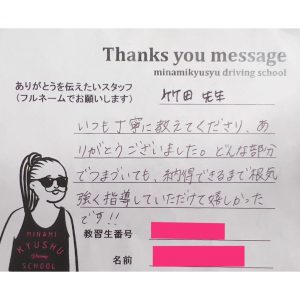 Thanks you message
minamikyusyu driving school
ありがとうを伝えたいスタッフ
(フルネームでお願いします)
竹田 先生
いつも丁寧に教えてくださり、あ
りがとうございました。どんな部分
でつまづいても、納得できるまで根気
強く指導していただけて嬉しかった
です!!
教習生番号
名前
MINAMI
KYUSHU
Driving
SCHOOL